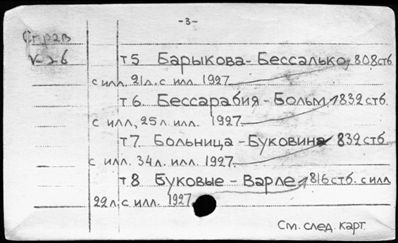 -3-
Справ
к-26
т5 Барыкова-Бессалько 808 стб.
с илл. 21л. с илл. 1927.
т6. Бессарабия-Больм 1832 стб.
с илл, 25л илл. 1927.
т7. Больница-Буковина 832 стб.
с илл. 34л. илл. 1927.
т8 Буковые-Варле 816 стб. с илл
22л. с илл. 1927
См. след. карт.